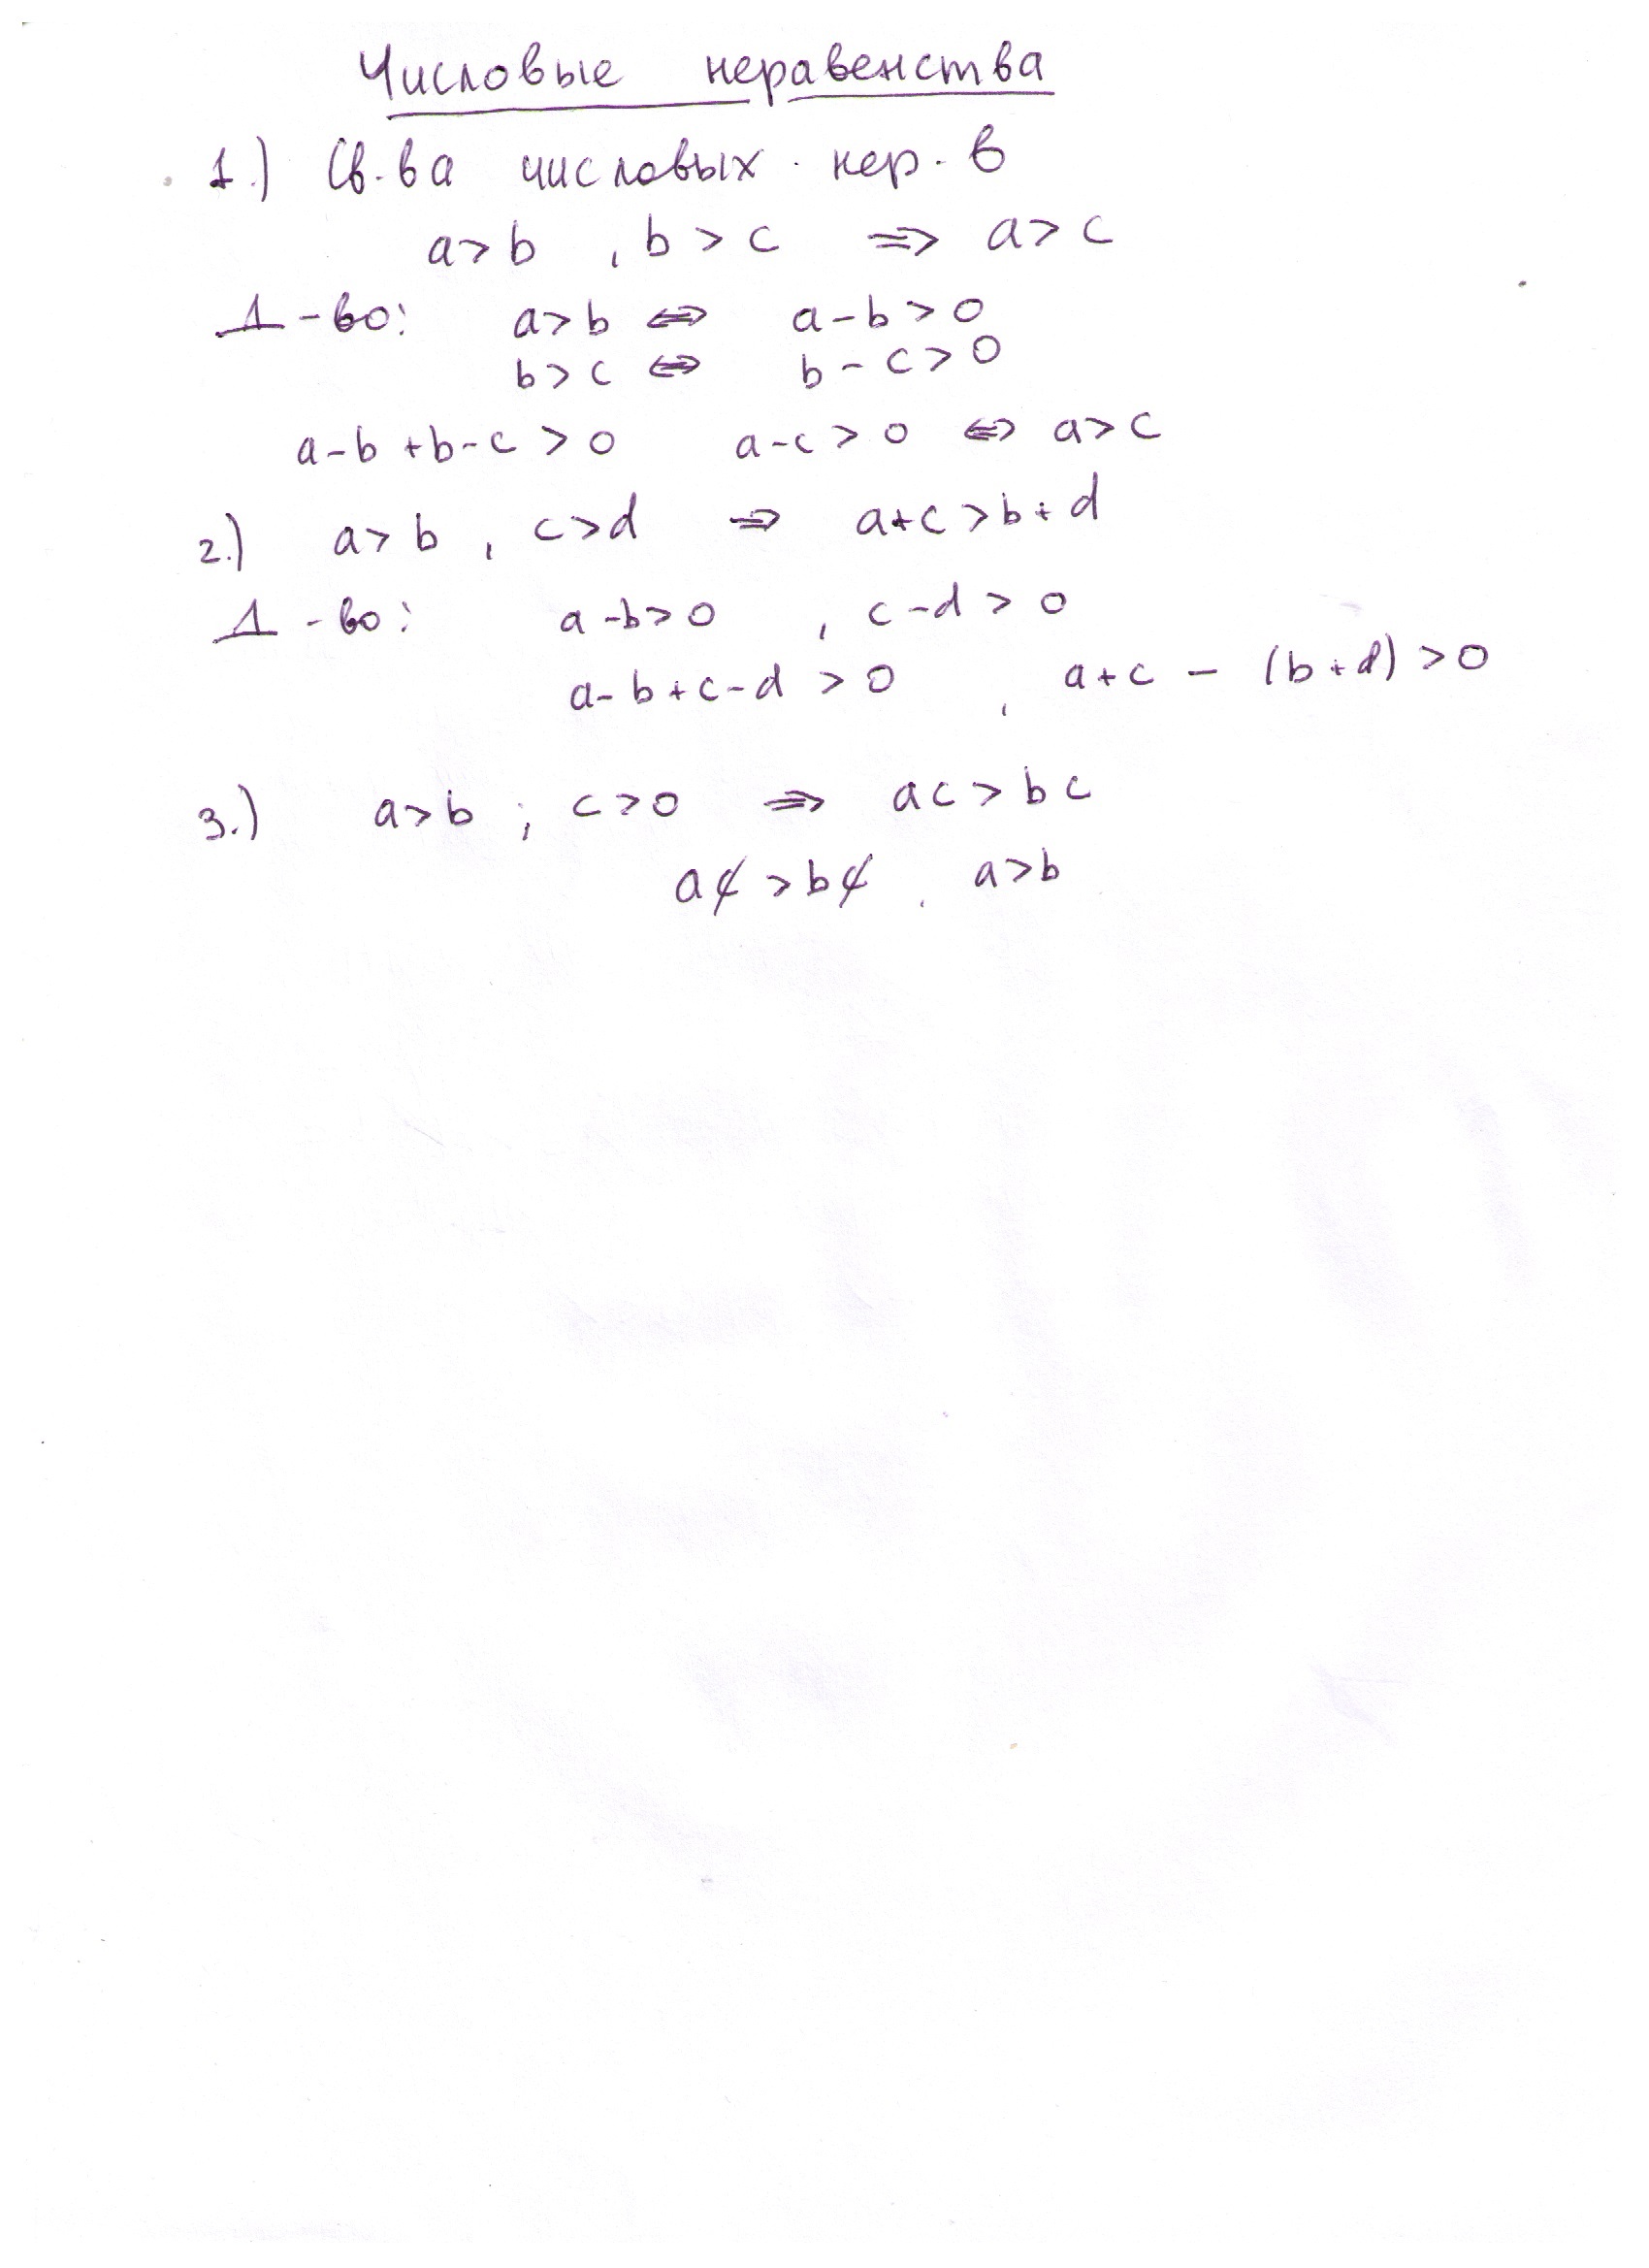 Числовые неравенства
1.) Св.ва числовых нер.в
a>b , b>c ⇒ a>c
Д-во: a>b ⇔ a-b>0
b>c ⇔ b-c>0
a-b+b-c>0 a-c>0 ⇔ a>c
2.) a>b , c>d ⇒ a+c>b+d
Д-во: a-b>0 , c-d>0
a-b+c-d>0 , a+c-(b+d)>0
3.) a>b ; c>0 ⇒ ac>bc
ac>bc , a>b